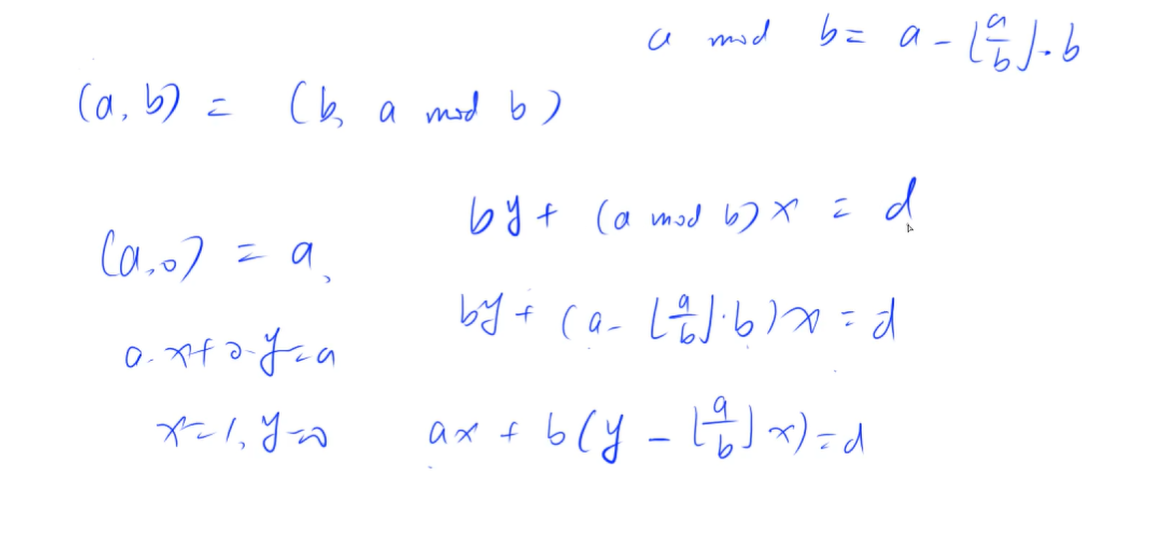 a mod b = a - ⌊a/b⌋·b
(a, b) = (b, a mod b)
by + (a mod b)x = d
(a, 0) = a,
by + (a - ⌊a/b⌋·b)x = d
a·x + 0·y = a
x=1, y=0
ax + b(y - ⌊a/b⌋x) = d